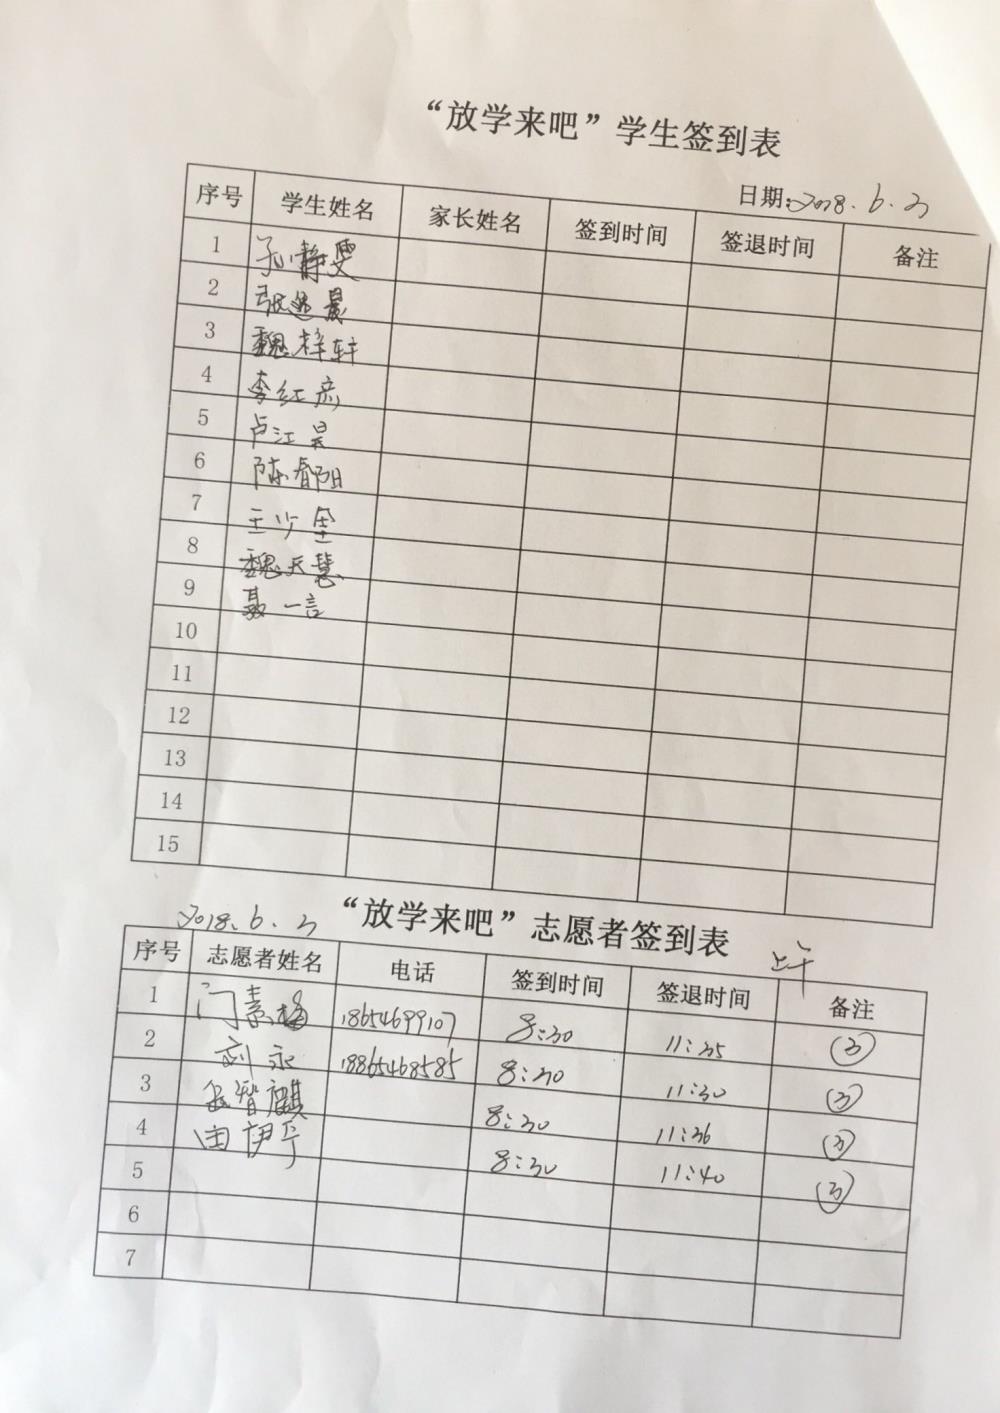 “放学来吧”学生签到表
日期:2018.6.2
序号 学生姓名 家长姓名 签到时间 签退时间 备注
1 孙静雯
2 张逸晨
3 魏梓轩
4 李红彦
5 卢江昊
6 陈春阳
7 王少
8 魏天慧
9 聂一言
10
11
12
13
14
15
2018.6.2 “放学来吧”志愿者签到表 上午
序号 志愿者姓名 电话 签到时间 签退时间 备注
1 门素梅 18654699107 8:30 11:35 ③
2 刘永 18865468585 8:30 11:30 ③
3 智麒 8:30 11:36 ③
4 伊宁 8:30 11:40 ③
5
6
7